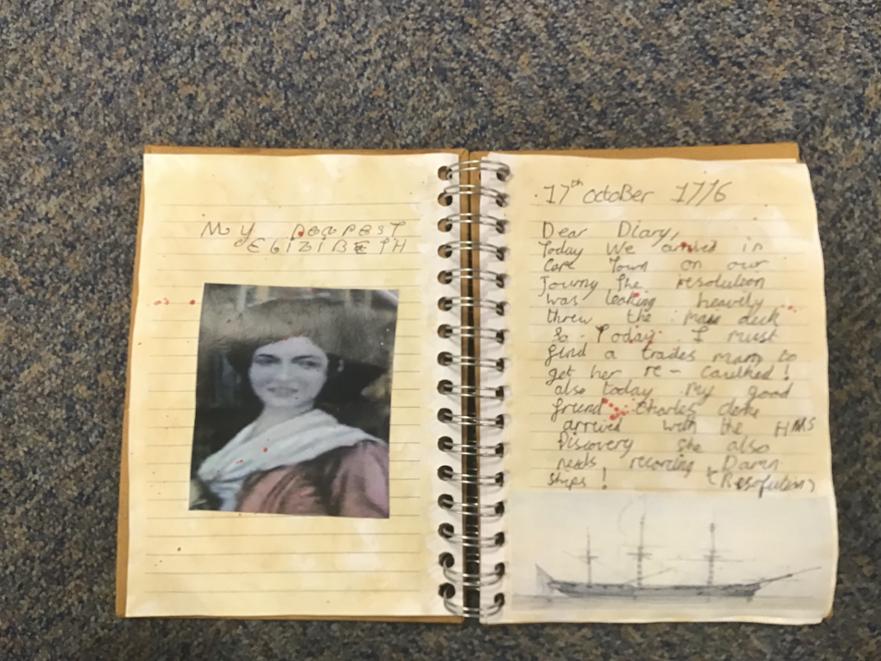 My DEAREST
ELIZIBETH
17th octoBer 1776
Dear Diary,
Today We arrived in
Cape Town on our
Journy the resolution
was leaking heavely
threw the main deck
So Today I must
find a trades man to
get her re-caulked!
also today my good
friend Charles clerke
arrived with the HMS
Discovery she also
needs recorking Damn
Ships! (Resolution)